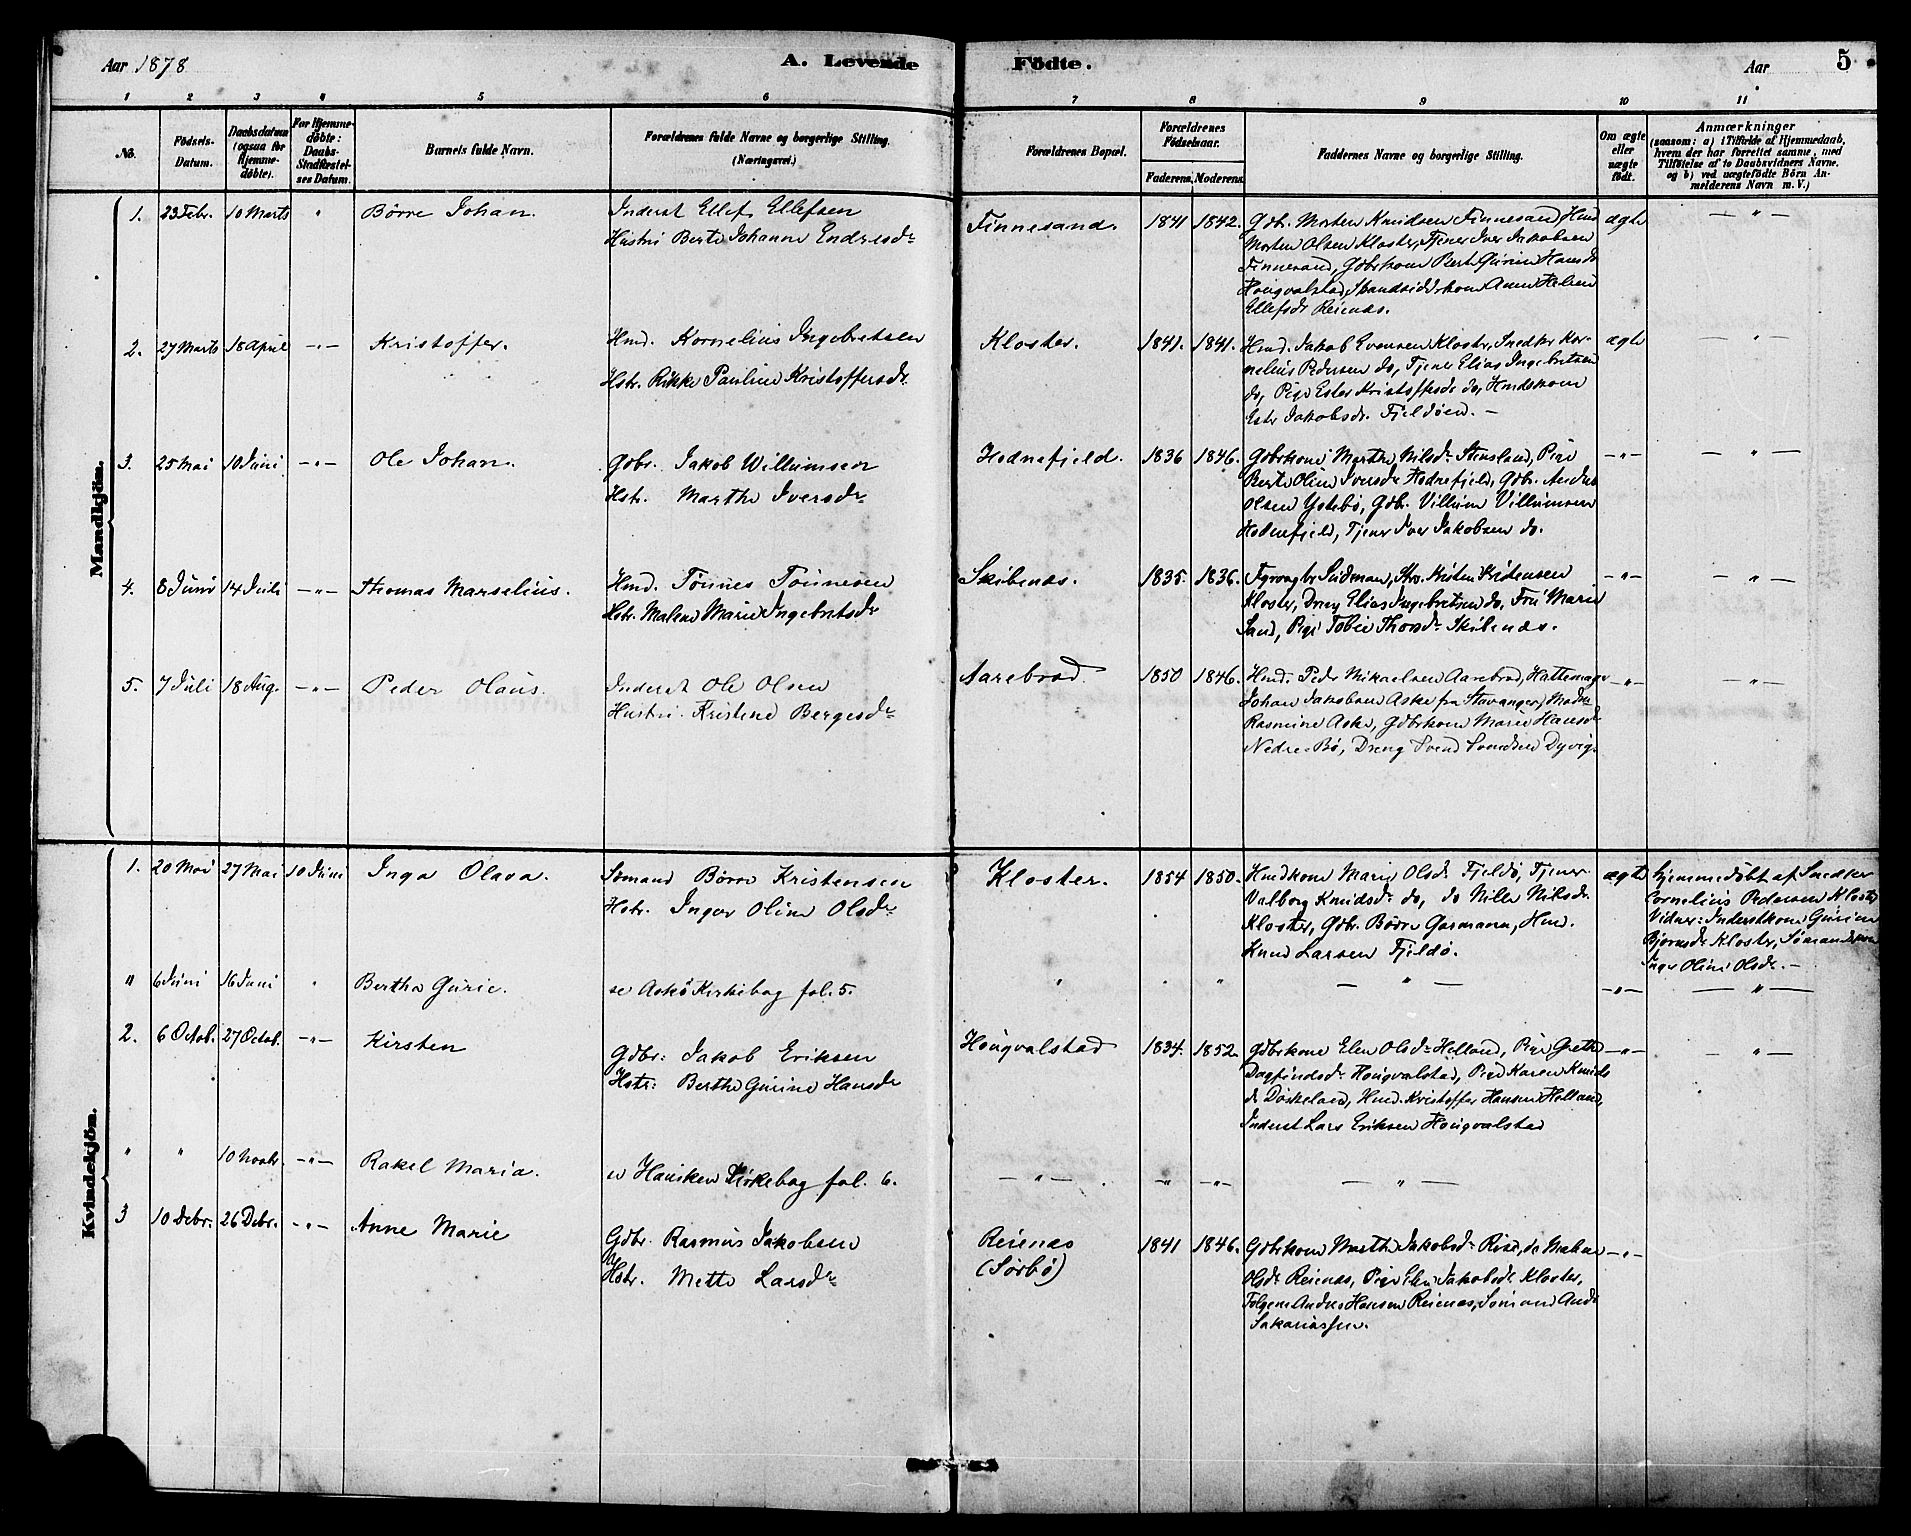 Aar 1878
A. Levende Födte.
Aar
5
1 2 3 4 5 6 7 8 9 10 11
No.
Födsels-Datum.
Daabsdatum (ogsaa for Hjemmedøbte).
For Hjemmedøbte: Daabs-Stadfæstelses Datum.
Barnets fulde Navn.
Forældrenes fulde Navne og borgerlige Stilling. (Næringsvei.)
Forældrenes Bopæl.
Forældrenes Födselsaar.
Faderens. Moderens.
Faddernes Navne og borgerlige Stilling.
Om ægte eller uægte födt.
Anmærkninger (saasom: a) i Tilfælde af Hjemmedaab, hvem der har forrettet samme, med Tilföielse af to Daabsvidners Navne, og b) ved uægtefödte Börn Anmelderens Navn m. V.)
Mandkjön.
1. 23 Febr. 10 Marts " Börre Johan. Inderst Ellef Ellefsen
Hustru Berte Johanne Endresdr
Finnesand. 1841 1842. Gdbr. Morten Knudsen Finnesand, Hmd
Morten Olsen Kloster, Tjener Iver Jakobsen
Finnesand, Gdbrkone Berte Gurine Hansdr
Hougvalstad, Anne Helene
Ellefsdr Reienæs.
ægte — " —
2. 27 Marts 18 April -"- Kristoffer. Hmd. Kornelius Ingebretsen
Hstr. Rikke Pauline Kristoffersdr.
Kloster. 1841. 1841. Hmd. Jakob Evensen Kloster, Snedker Kornelius
Pedersen do, Tjener Elias Ingebretsen
do, Pige Ester Kristoffersdr do, Hmdskone
Ester Jakobsdr. Fjeldöen. —
ægte — " —
3. 25 Mai 10 Juni -"- Ole Johan. Gdbr. Jakob Willumsen
Hstr. Marthe Iversdr
Hodnefjeld. 1836 1846. Gdbrkone Marthe Nilsdr Stensland, Pige
Berte Oline Iversdr Hodnefjeld, Gdbr. Anders
Olsen Ystebö, Gdbr. Villum Villumsen
Hodnefjeld, Tjener Iver Jakobsen do.
-"- — " —
4. 8 Juni 14 Juli -"- Thomas Marselius. Hmd. Tönnes Tönnesen
Hstr. Malene Marie Ingebretsdr
Skibenæs. 1835. 1836. Fyrvogter Sudman, Kristensen
Kloster, Dreng Elias Ingebretsen do, Fru Marie
Sand, Pige Tobie Thorsdr Skibenæs.
-"- — " —
5. 7 Juli 18 Aug. -"- Peder Olaus. Inderst Ole Olsen
Hustru. Kristine Bergesdr
Aarebrod. 1850 1846. Hmd. Peder Mikaelsen Aarebrod, Hattemager
Johan Jakobsen Aske fra Stavanger, Madme
Rasmine Aske, Gdbrkone Marie Hansdr
Nedre-Bö, Dreng Svend Svendsen Dyvig.
-"- — " —
Kvindekjön.
1. 20 Mai 27 Mai 10 Juni Inga Olava. Sömand Börre Kristensen
Hstr. Inger Oline Olsdr
Kloster. 1854 1850. Hmdkone Marie Olsdr. Fjeldö, Tjener
Valborg Knudsdr do, do Nille Nilsdr.
Kloster, Gdbr. Börre Garmann, Hmd.
Knud Larsen Fjeldö.
ægte Hjemmedöbt af Snedker
Cornelius Pedersen Kloster
Vidner: Inderstkone Gurine
Bjornsdr Kloster, Sömandskone
Inger Oline Olsdr. —
" 6 Juni 16 Juni " Bertha Gurie. se Askö Kirkebog fol. 5. " " " — " — -"- — " —
2. 6 Octob. 27 Octob. -"- Kirsten Gdbr: Jakob Eriksen
Hstr: Berthe Gurine Hansdr
Hougvalstad 1834. 1852. Gdbrkone Elen Olsdr Helland, Pige Grethe
Dagfindsdr Hougvalstad, Pige Karen Knuds
dr Döskeland, Hmd. Kristoffer Hansen Helland,
Inderst Lars Eriksen Hougvalstad
-"- — " —
" " 10 Novbr. -"- Rakel Maria. se Hausken Kirkebog fol. 6. — " — -"- -"- — " —
3 10 Debr. 26 Debr. -"- Anne Marie Gdbr. Rasmus Jakobsen
Hstr. Mette Larsdr
Reienæs
(Sörbö)
1841 1846. Gdbrkone Marthe Jakobsdr Rise, do Malene
Olsdr Reienæs, Pige Elen Jakobsdr Kloster,
Andreas Hansen Reienæs, Sömand Andr
Sakariassen.
-"-